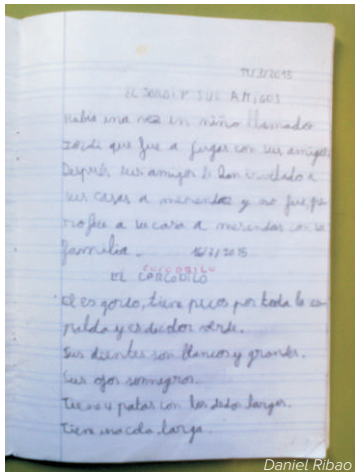 11/2/2015
EL JORDI Y SUS AMIGOS
Habia una vez un niño llamador
Jordi que fue a jugar con sus amigos
Después sus amigos le han invitado a
sus casas a merendar y no fue, pe
ro fue a su casa a merendar con su
familia. 16/2/2015
COCODRILO
EL CORCODILO
El es gordo, tiene pecos por toda la es
palda y es de color verde.
Sus dientes son blancos y grandes.
Sus ojos son negros.
Tiene 4 patas con los dedos largos.
Tiene una cola larga.
Daniel Ribao